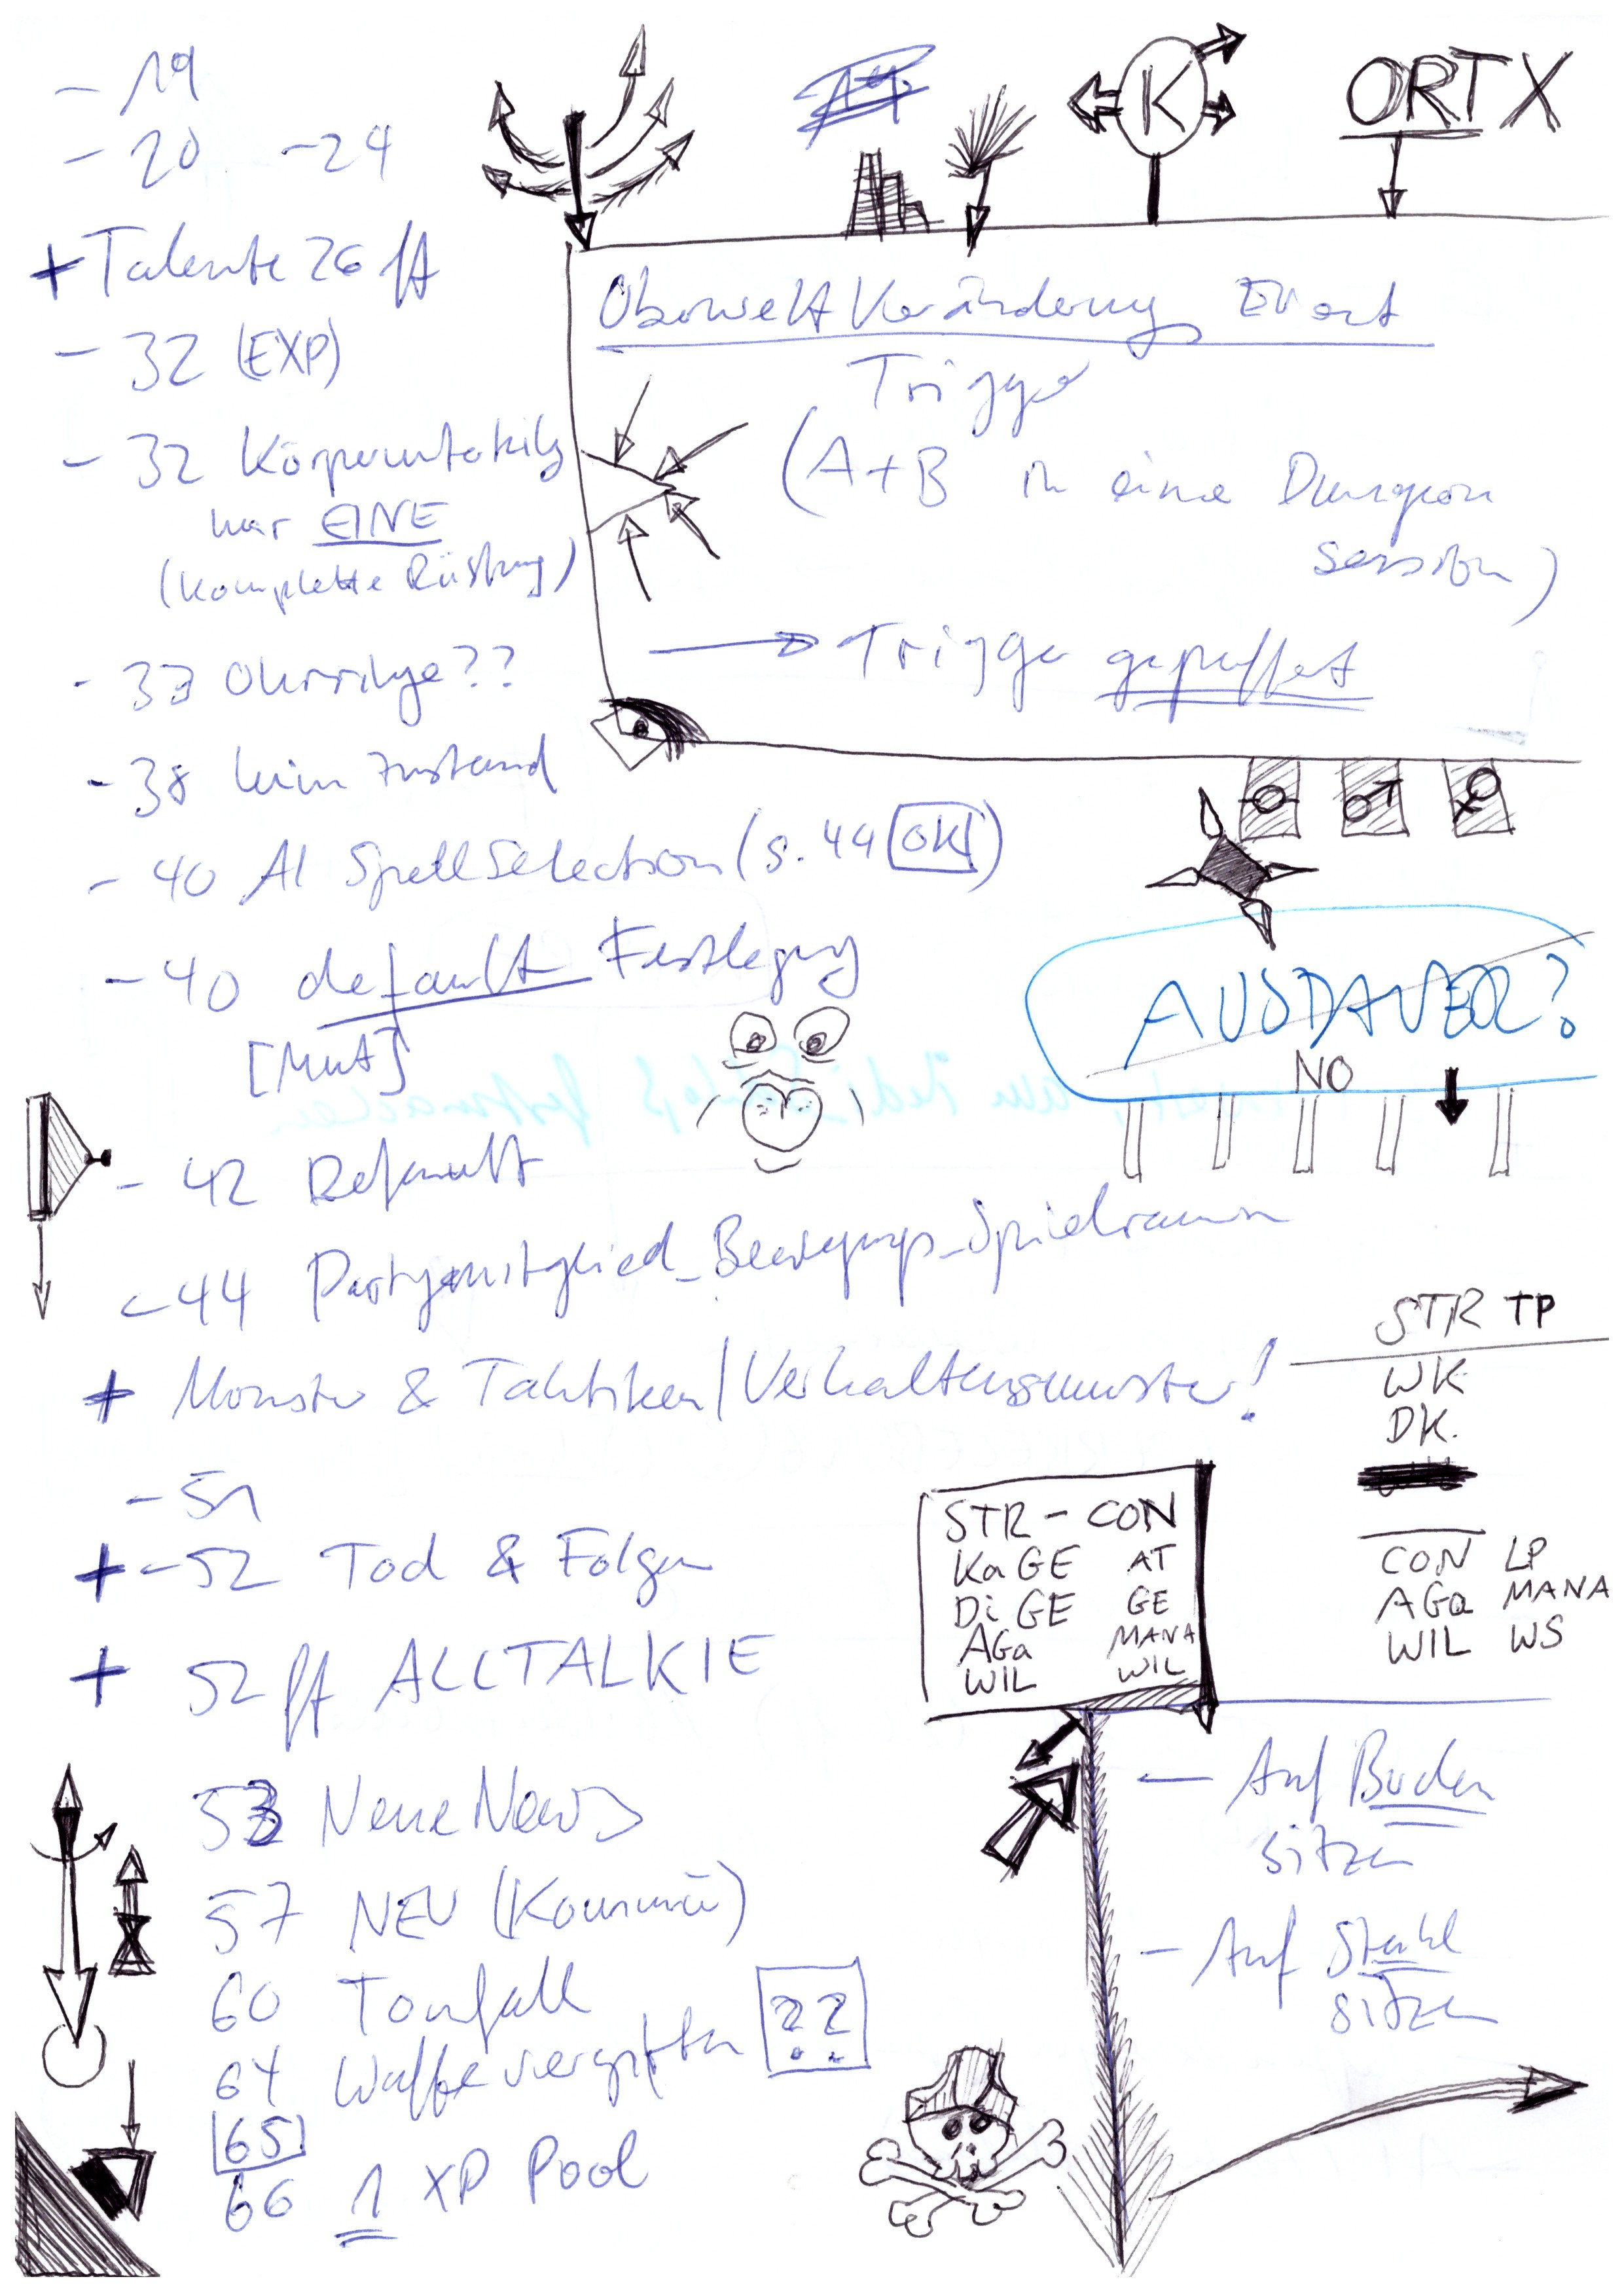 - 19
- 20 - 24
+ Talente 26 ff
- 32 (EXP)
- 32
nur EINE
(komplette Rüstung)
- 33 Ohrringe??
- 38 kein Zustand
- 40 AI Spell Selection (s. 44 OK)
- 40 default Festlegung
[Mut]
- 42 Default
- 44 Partymitglied_Bewegungs_Spielraum
+ Monster & Taktiken / Verhaltensmuster!
- 51
+ - 52 Tod & Folgen
+ 52 ff ALLTALKIE
53 Neue News
57 NEU (Kommü)
60 Tonfall
64 Waffe vergiften ??
65
66 1 XP Pool
K
ORT X
Oberwelt Veränderung Event
Trigger
(A+B in einer Dungeon
Session)
Trigger gepuffert
AUSDAUER?
NO
STR TP
WK
DK.
CON LP
AGa MANA
WIL WS
STR - CON
KaGE AT
Di GE GE
AGa MANA
WIL WIL
- Auf Boden
sitzen
- Auf Stuhl
sitzen